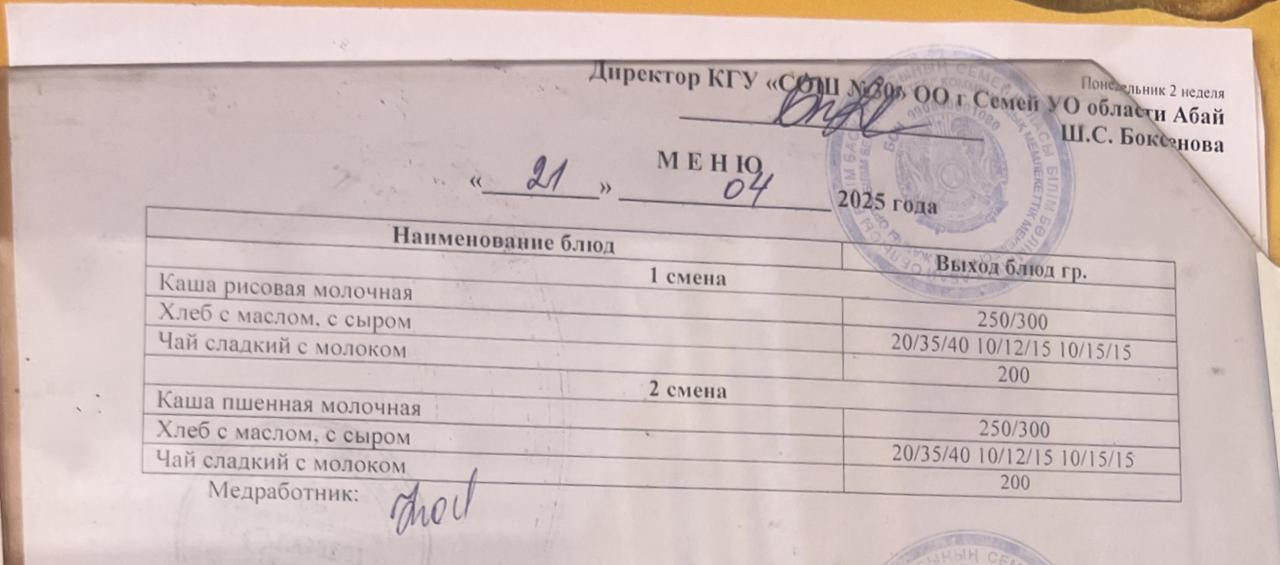 Понедельник 2 неделя
Директор КГУ «СОШ №30» ОО г Семей УО области Абай
Ш.С. Боксенова
М Е Н Ю
« 21 » 04 2025 года
Наименование блюд Выход блюд гр.
1 смена
Каша рисовая молочная 250/300
Хлеб с маслом, с сыром 20/35/40 10/12/15 10/15/15
Чай сладкий с молоком 200
2 смена
Каша пшенная молочная 250/300
Хлеб с маслом, с сыром 20/35/40 10/12/15 10/15/15
Чай сладкий с молоком 200
Медработник: